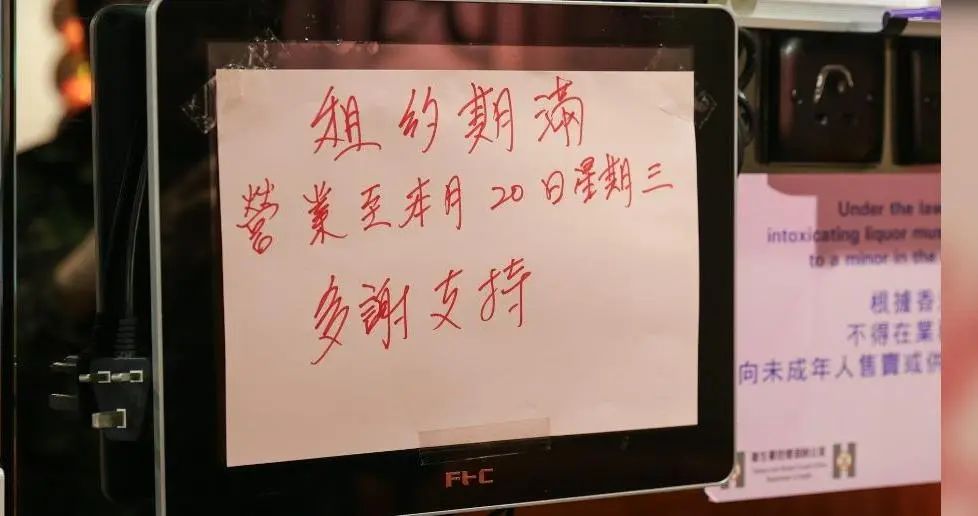 租約期滿
營業至本月20日星期三
多謝支持
FEC
Under the law
intoxicating liquor mus
to a minor in the
根據香
不得在業
向未成年人售賣或供